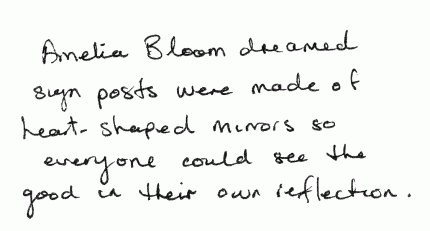 Amelia Bloom dreamed
sign posts were made of
heart-shaped mirrors so
everyone could see the
good in their own reflection.